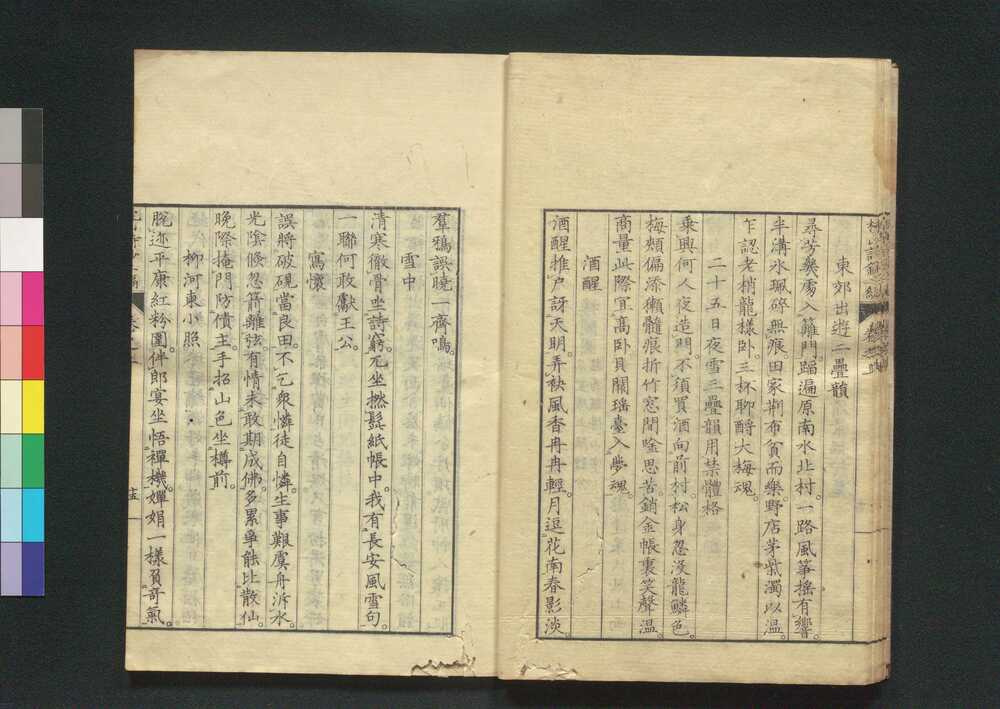 東郊出遊二疊韻
尋芳幾處入籬門。蹋遍原南水北村。一路風箏搖有響。
半溝氷珮碎無痕。田家荆布貧而樂。野店茅柴濁以溫。
乍認老梢龍樣臥。三杯聊酹大梅魂。
二十五日夜雪三疊韻用禁體格
乗興何人夜造門。不須買酒向前村。松身忽沒龍鱗色。
梅頰偏添獺髓痕。折竹窓間唫思苦。銷金帳裏笑聲溫。
商量此際宜高臥。貝闕瑤臺入夢魂。
酒醒
酒醒推户訝天明。弄袂風香冉冉輕。月逗花南春影淡。
羣鴉誤曉一齊鳴。
雪中
清寒徹骨坐詩窮。兀坐撚髭紙帳中。我有長安風雪句。
一聯何敢獻王公。
寫懷
誤將破硯當良田。不乞衆憐徒自憐。生事艱虞舟泝水。
光陰倏忽箭離弦。有情未敢期成佛。多累爭能比散仙。
晚際掩門防債主。手招山色坐樽前。
柳河東小照
脫迹平康紅粉圍。伴郎宴坐悟禪機。嬋娟一樣負奇氣。